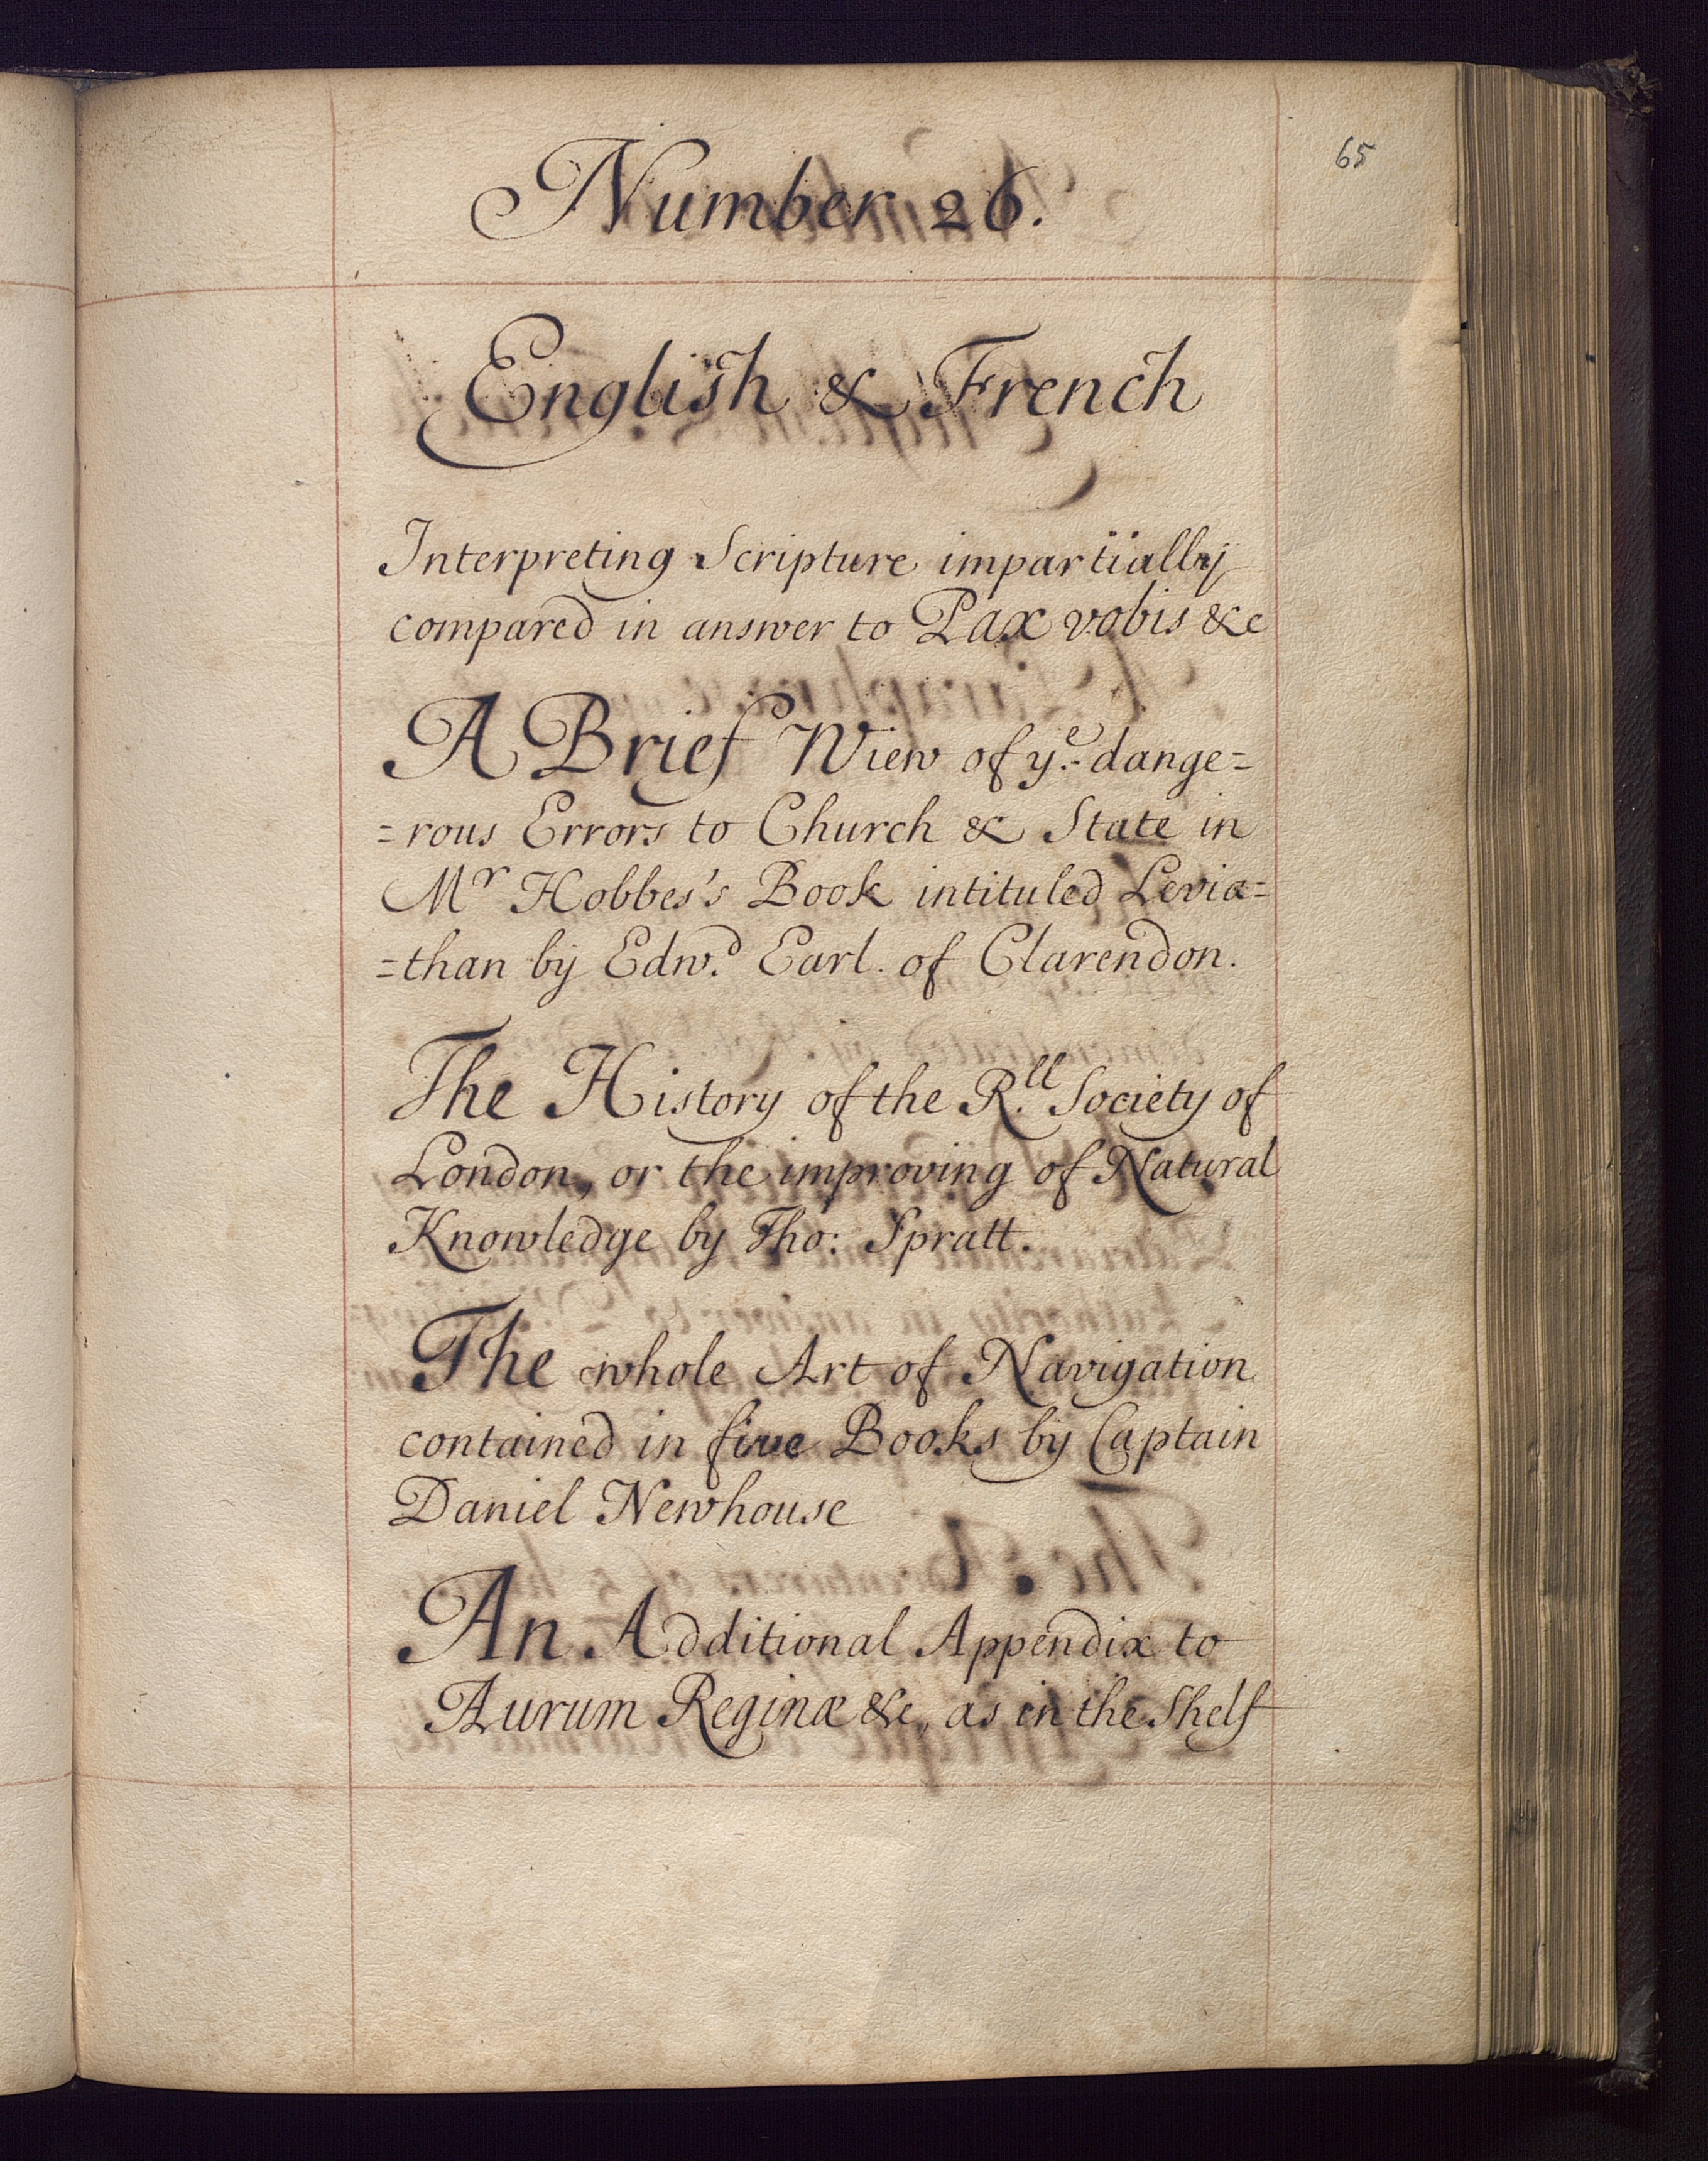 65
Number 26.
English & French
Interpreting Scripture impartially
compared in answer to Pax vobis &c
A Brief View of yͤ dange=
=rous Errors to Church & State in
Mʳ Hobbes's Book intituled Levia=
=than by Edw.ᵈ Earl of Clarendon.
The History of the R.ˡˡ Society of
London, or the improving of Natural
Knowledge by Tho: Spratt.
The whole Art of Navigation
contained in five Books by Captain
Daniel Newhouse
An Additional Appendix to
Aurum Reginæ &c, as in the Shelf